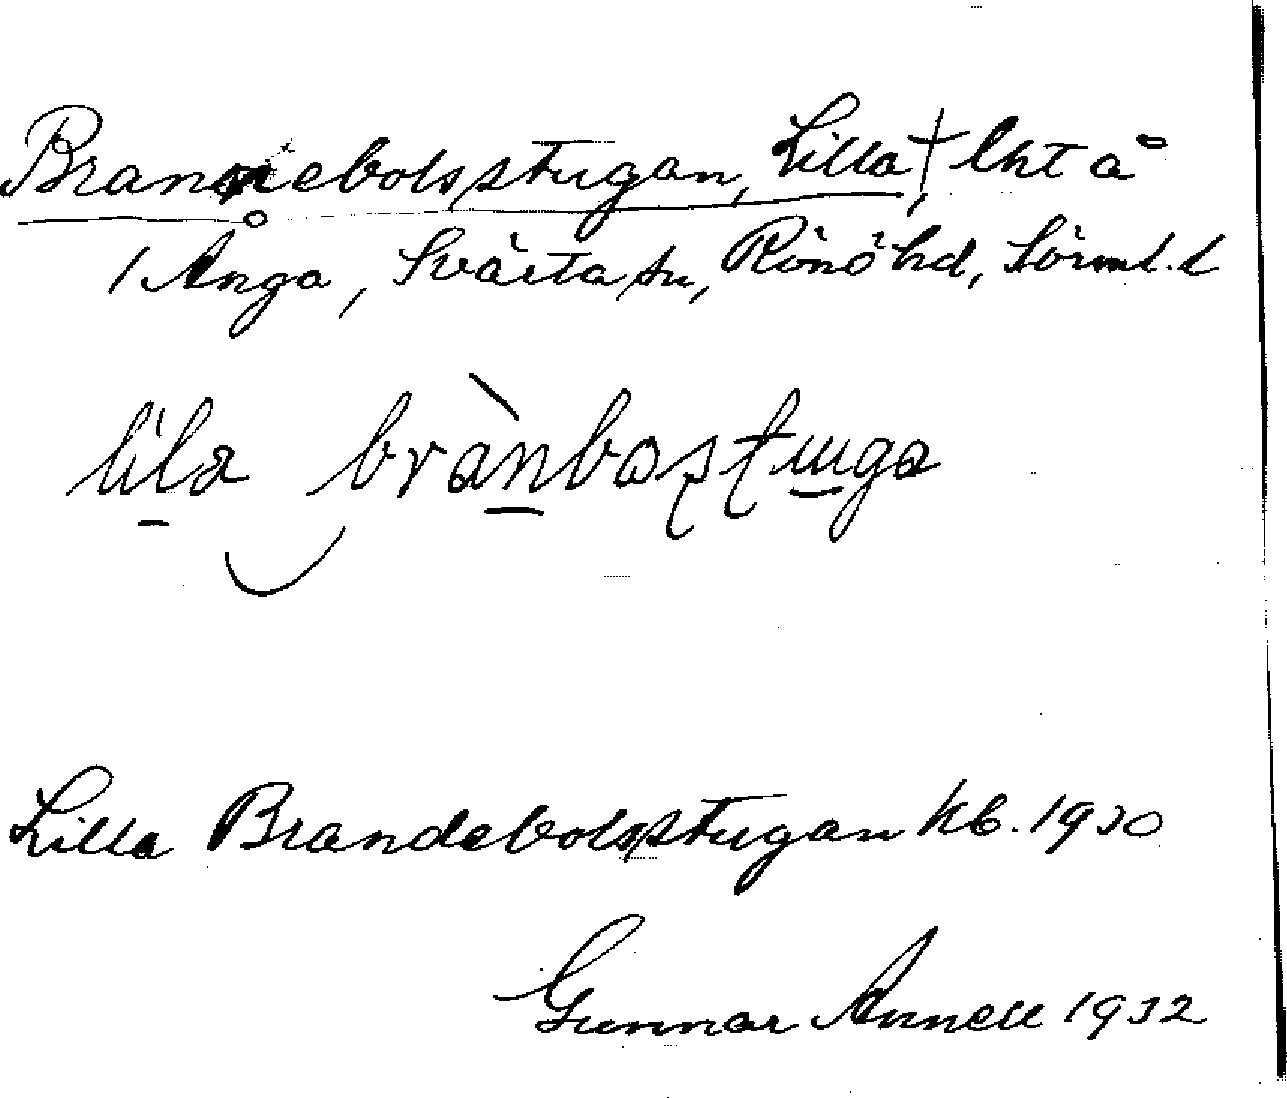 Brannebolsstugan, Lilla † lht å
1 Ånga, Svärta sn, Rönö hd, Sörml. l
lila brànbostuga
Lilla Brandebolsstugan kb. 1930
Gunnar Annell 1932